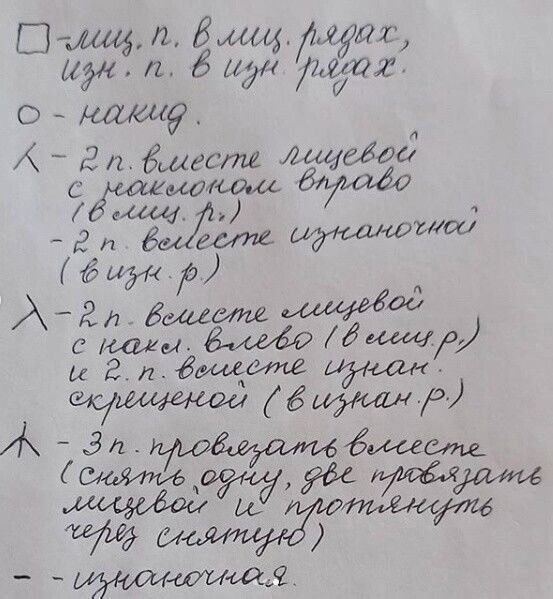 □ - лиц. п. в лиц. рядах,
изн. п. в изн. рядах.
О - накид.
⋌ - 2 п. вместе лицевой
с наклоном вправо
(в лиц. р.)
- 2 п. вместе изнаночной
(в изн. р.)
λ - 2 п. вместе лицевой
с накл. влево (в лиц. р.)
и 2. п. вместе изнан.
скрещеной (в изнан. р.)
⋏ - 3 п. провязать вместе
(снять одну, две провязать
лицевой и протянуть
через снятую)
- - изнаночная.